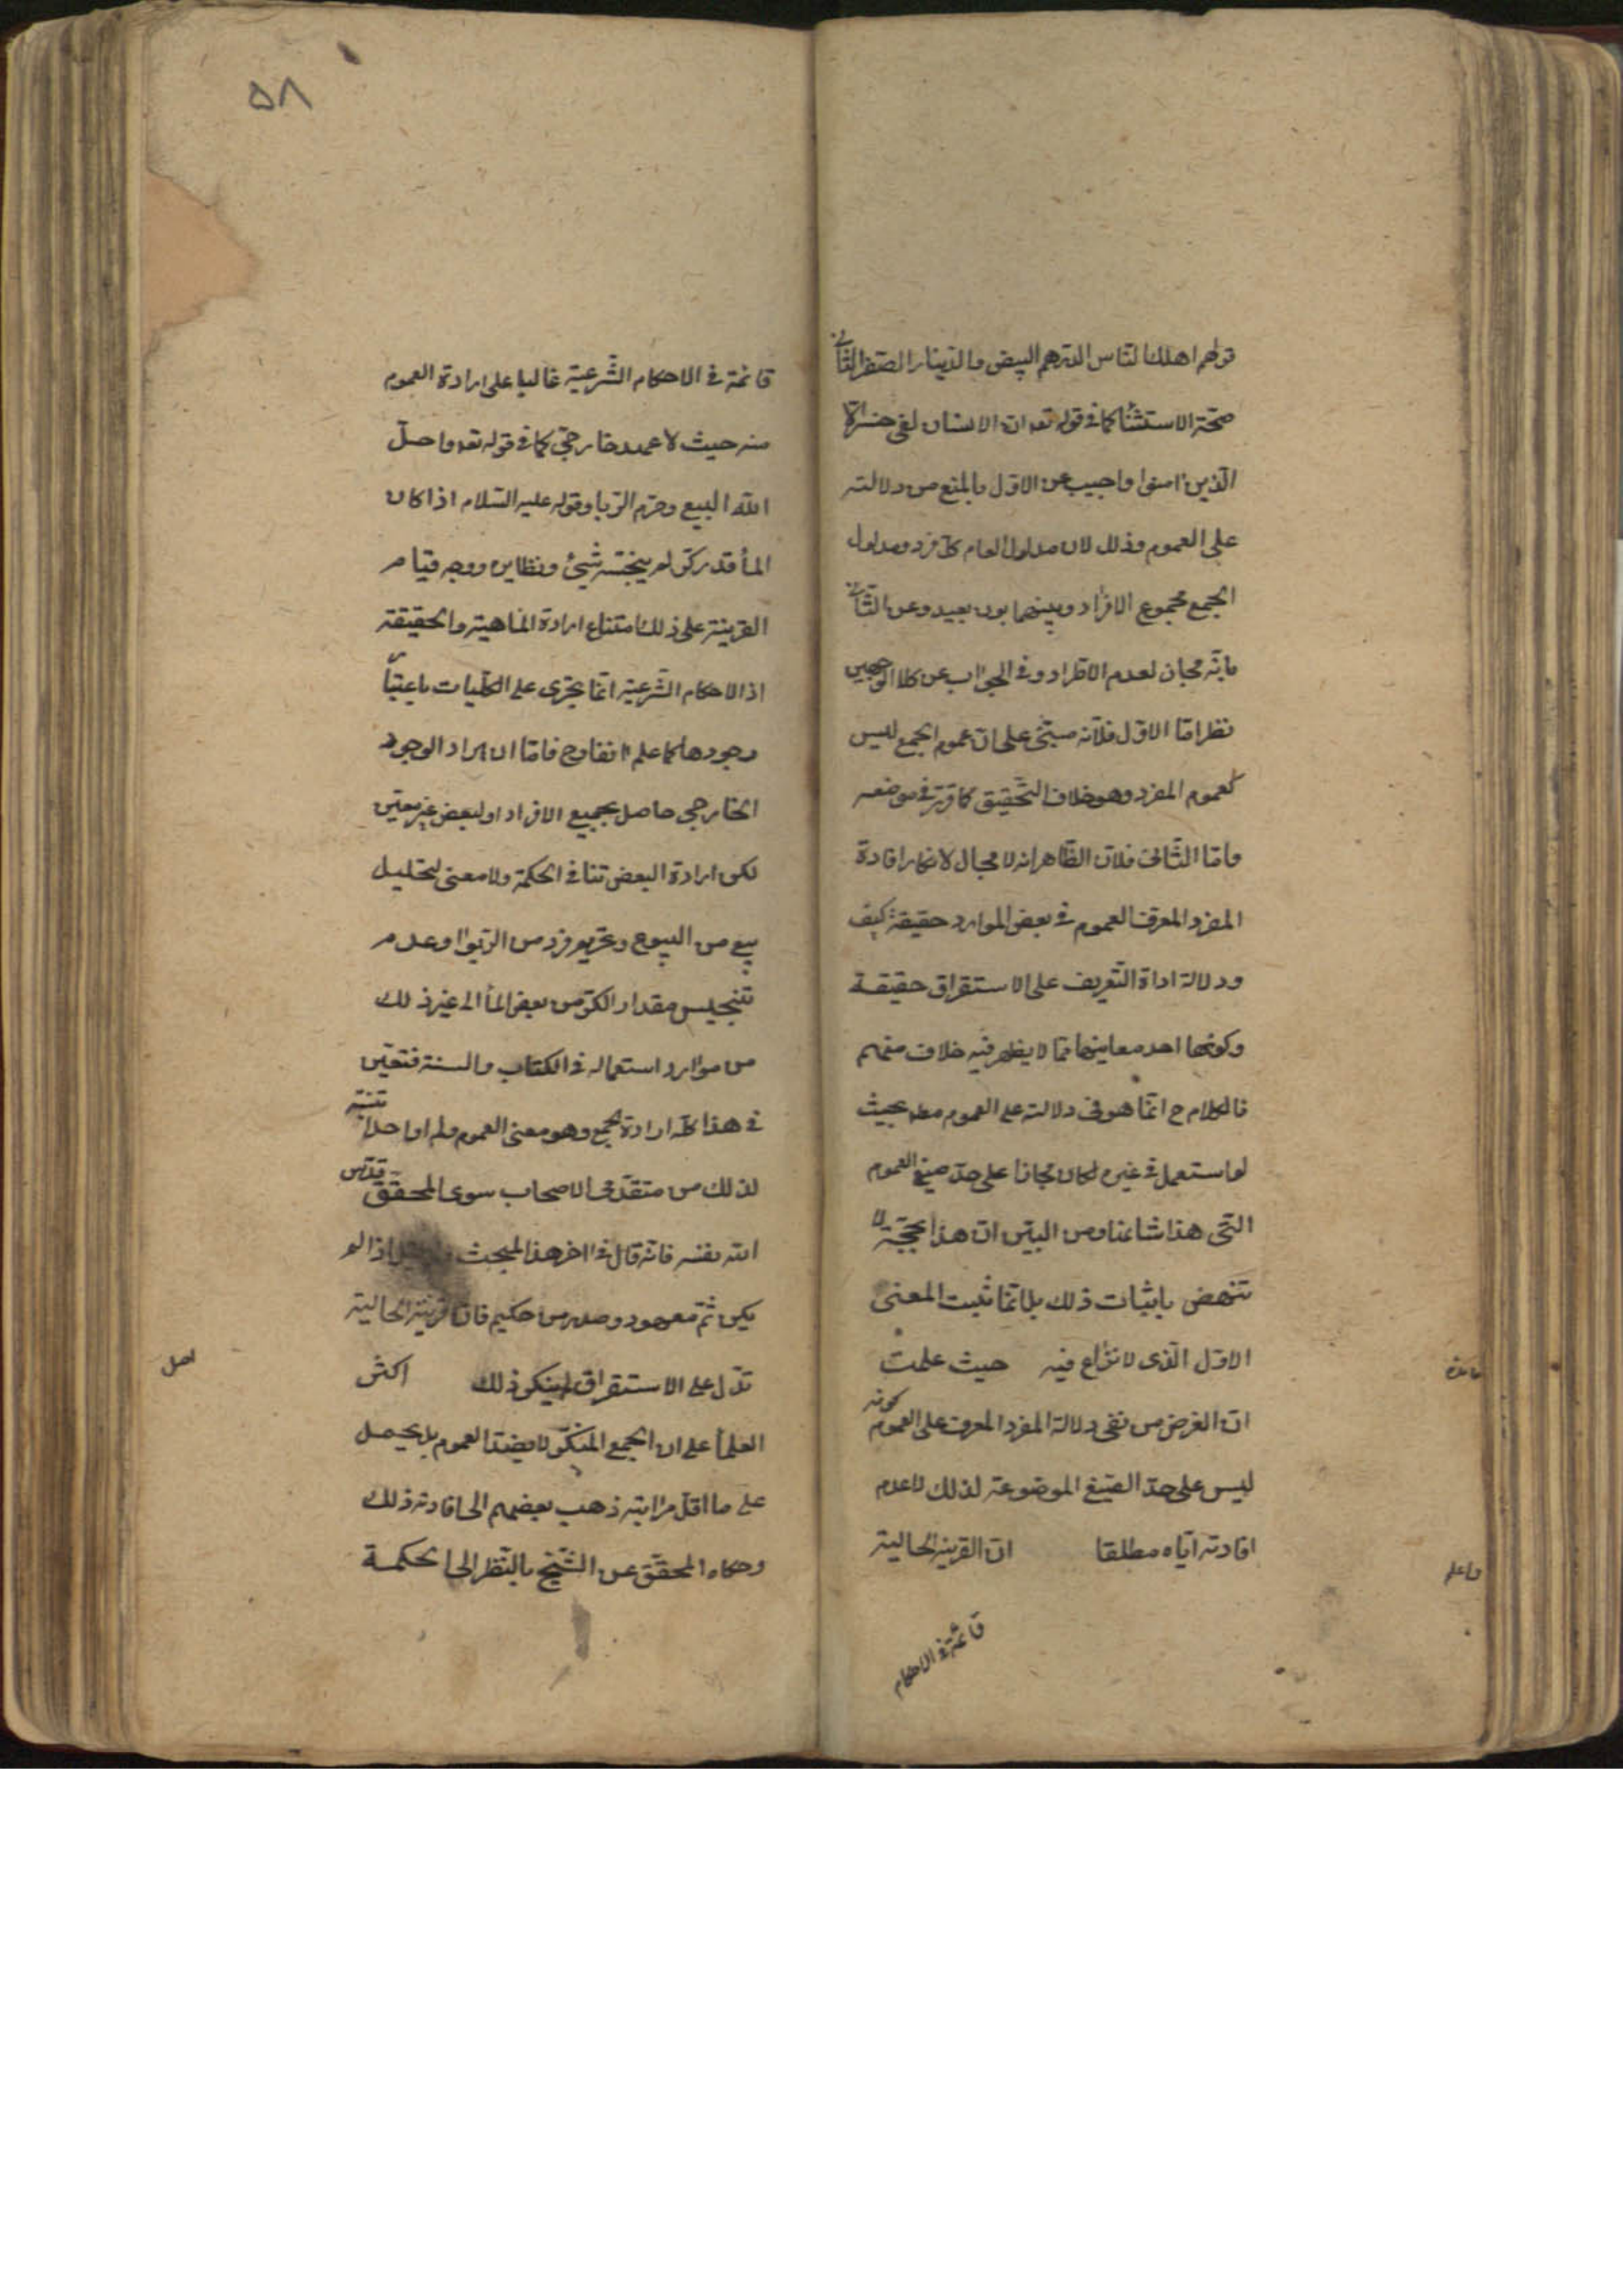 قولهم اهلك الناس الدرهم البيض والدينار الصفر الثانى
صحة الاستثنا كما فى قوله تعه ان الانسان لفى خسر الا
الذين امنوا واجيب عن الاول بالمنع من دلالته
على العموم وذلك لان مدلول العام كل فرد ومدلول
الجمع مجموع الافراد وبينهما بون بعيد وعن الثانى
بانه مجاز لعدم الاطراد وفى الجواب عن كلا الوجهين
نظر اما الاول فلانه مبنى على ان عموم الجمع ليس
كعموم المفرد وهو خلاف التحقيق كما قرر فى موضعه
واما الثانى فلان الظاهر انه لا مجال لانكار افادة
المفرد المعرف العموم فى بعض الموارد حقيقة كيف
ودلالة اداة التعريف على الاستقراق حقيقة
وكونها احد معانيها مما لا يظهر فيه خلاف منهم
فالكلام ح انما هو فى دلالته على العموم مطه بحيث
لو استعمل فى غيره لكان مجازا على حد صيغ العموم
التى هذا شانها ومن البين ان هذا الحجة لا
تنهض باثبات ذلك بل انما تثبت المعنى
الاول الذى لا نزاع فيه حيث علمت
فائدة
ان الغرض من نفى دلالة المفرد المعرف على العموم كونه
ليس على حد الصيغ الموضوعة لذلك لا عدم
افادته اياه مطلقا ان القرينة الحالية
فاعلم
قائمة فى الاحكام
٥٨
قائمة فى الاحكام الشرعية غالبا على ارادة العموم
منه حيث لا عهد خارجى كما فى قوله تعه واحل
الله البيع وحرم الربا وقوله عليه السلام اذا كان
المأ قدر كر لم ينجسه شيئ ونظايره ووجه قيام
القرينة على ذلك امتناع ارادة الماهية والحقيقة
اذ الاحكام الشرعية انما تجرى على الكليات باعتبار
وجودها كما علم انفا وح فاما ان يراد الوجود
الخارجى حاصل بجميع الافراد او لبعض غير معين
لكن ارادة البعض تنافى الحكمة ولا معنى لتحليل
بيع من البيوع وتحريم فرد من الربوا وعدم
تنجيس مقدار الكر من بعض المأ الى غير ذلك
من موارد استعماله فى الكتاب والسنة فتعين
فى هذا كله ارادة الجميع وهو معنى العموم ولم ار احدا تنبه
لذلك من متقدمى الاصحاب سوى المحقق قدس
الله نفسه فانه قال فى اخر هذا المبحث اذا لم
يكن ثم معهود وصدر من حكيم فان قرينة الحالية
تدل على الاستقراق لم ينكر ذلك اكثر
اصل
العلمأ على ان الجمع المنكر لا يفيد العموم بل يحمل
على ما اقل مراتبه ذهب بعضهم الى افادته ذلك
وحكاه المحقق عن الشيخ بالنظر الى الحكمة